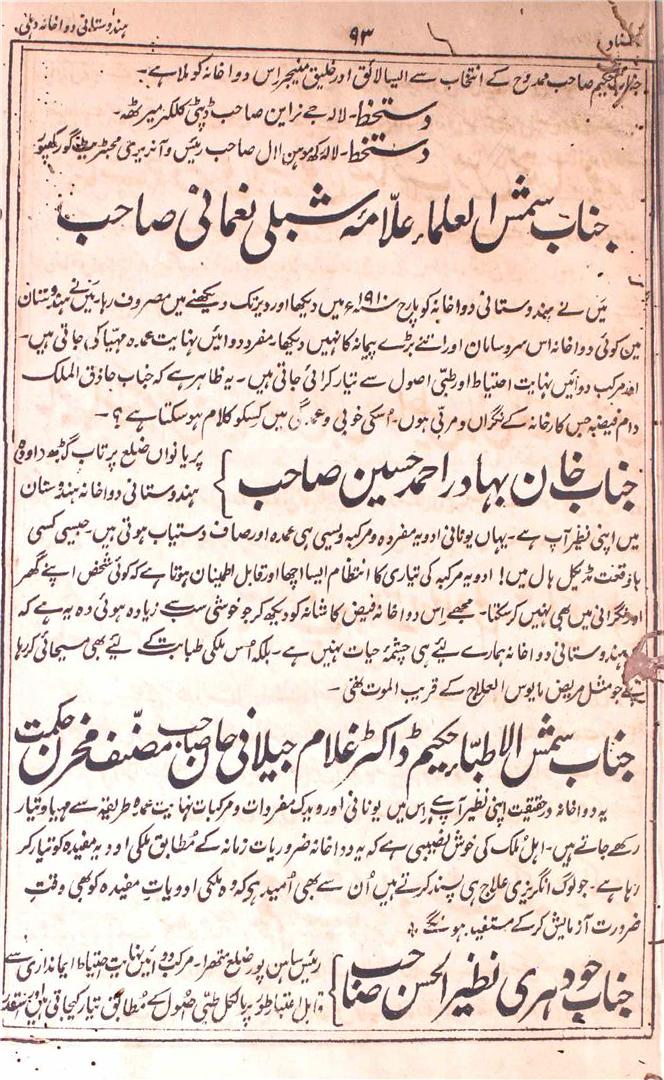 ہندوستانی دواخانہ دہلی
۹۳
اسناد
جناب حکیم صاحب ممدوح کے انتخاب سے ایسا لائق اور خلیق منیجر اس دواخانہ کو ملا ہے۔
دستخط۔ لالہ جے نراین صاحب ڈپٹی کلکٹر میرٹھ۔
دستخط۔ لالہ موہن لال صاحب رئیس و آنریری مجسٹریٹ گورکھپور
جناب شمس العلماء علامہ شبلی نعمانی صاحب
میں نے ہندوستانی دواخانہ کو مارچ ۱۹۱۰ء میں دیکھا اور دیر تک دیکھنے میں مصروف رہا۔ میں نے ہندوستان
میں کوئی دواخانہ اس سروسامان اور اتنے بڑے پیمانہ کا نہیں دیکھا۔ مفرد دوائیں نہایت عمدہ مہیا کی جاتی ہیں۔
اور مرکب دوائیں نہایت احتیاط اور طبی اصول سے تیار کرائی جاتی ہیں۔ یہ ظاہر ہے کہ جناب حاذق الملک
دام فیضہ جس کارخانہ کے نگراں و مربی ہوں۔ اسکی خوبی و عمدگی میں کسکو کلام ہو سکتا ہے؟۔
جناب خان بہادر احمد حسین صاحب } پریانواں ضلع پرتاب گڈھ داودہ
ہندوستانی دواخانہ ہندوستان
میں اپنی نظیر آپ ہے۔ یہاں یونانی ادویہ مفردہ و مرکبہ ویسی ہی عمدہ اور صاف دستیاب ہوتی ہیں۔ جیسی کسی
باوقعت مڈیکل ہال میں! ادویہ مرکبہ کی تیاری کا انتظام ایسا اچھا اور قابل اطمینان ہوتا ہے کہ کوئی شخص اپنے گھر
اور نگرانی میں بھی نہیں کر سکتا۔ مجھے اس دواخانہ فیض کاشانہ کو دیکھ کر جو خوشی سب سے زیادہ ہوئی وہ یہ ہے کہ
ہندوستانی دواخانہ ہمارے لئے ہی چشمۂ حیات نہیں ہے۔ بلکہ اُس ملکی طبابت کے لیے بھی مسیحائی کر رہا
ہے جو مثل مریض مایوس العلاج کے قریب الموت تھی۔
جناب شمس الاطباء حکیم ڈاکٹر غلام جیلانی خان صاحب مصنف مخزن حکمت
یہ دواخانہ درحقیقت اپنی نظیر آپ ہے۔ اس میں یونانی اور ویدک مفردات و مرکبات نہایت عمدہ طریقہ سے مہیا و تیار
رکھے جاتے ہیں۔ اہل مُلک کی خوش نصیبی ہے کہ یہ دواخانہ ضروریات زمانہ کے مُطابق ملکی ادویہ مفیدہ کو تیار کر
رہا ہے۔ جو لوگ انگریزی علاج ہی پسند کرتے ہیں اُن سے بھی اُمید ہے کہ وہ ملکی ادویات مفیدہ کو بھی وقتِ
ضرورت آزمایش کر کے مستفید ہونگے
جناب چودہری نظیر الحسن صاحب } رئیس ضلع متھرا۔ مرکب دوائیں نہایت احتیاط ایمانداری سے
قابل بالکل طبی اصول کے مُطابق تیار کیجاتی ہیں